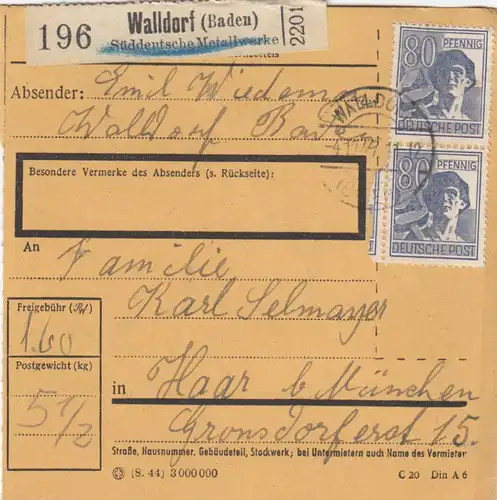 196
Walldorf (Baden)
Süddeutsche Metallwerke
2201
80 PFENNIG
DEUTSCHE POST
80 PFENNIG
DEUTSCHE POST
WALLDO
Absender: Emil
Walldorf
Besondere Vermerke des Absenders (s. Rückseite):
An
Familie
Karl Selmayer
Freigebühr (RM)
1.60
Postgewicht (kg)
5 1/2
in Haar b München
Gronsdorferst 15.
Straße, Hausnummer, Gebäudeteil, Stockwerk; bei Untermietern auch Name des Vermieter
(S. 44) 3 000 000
C 20 Din A 6